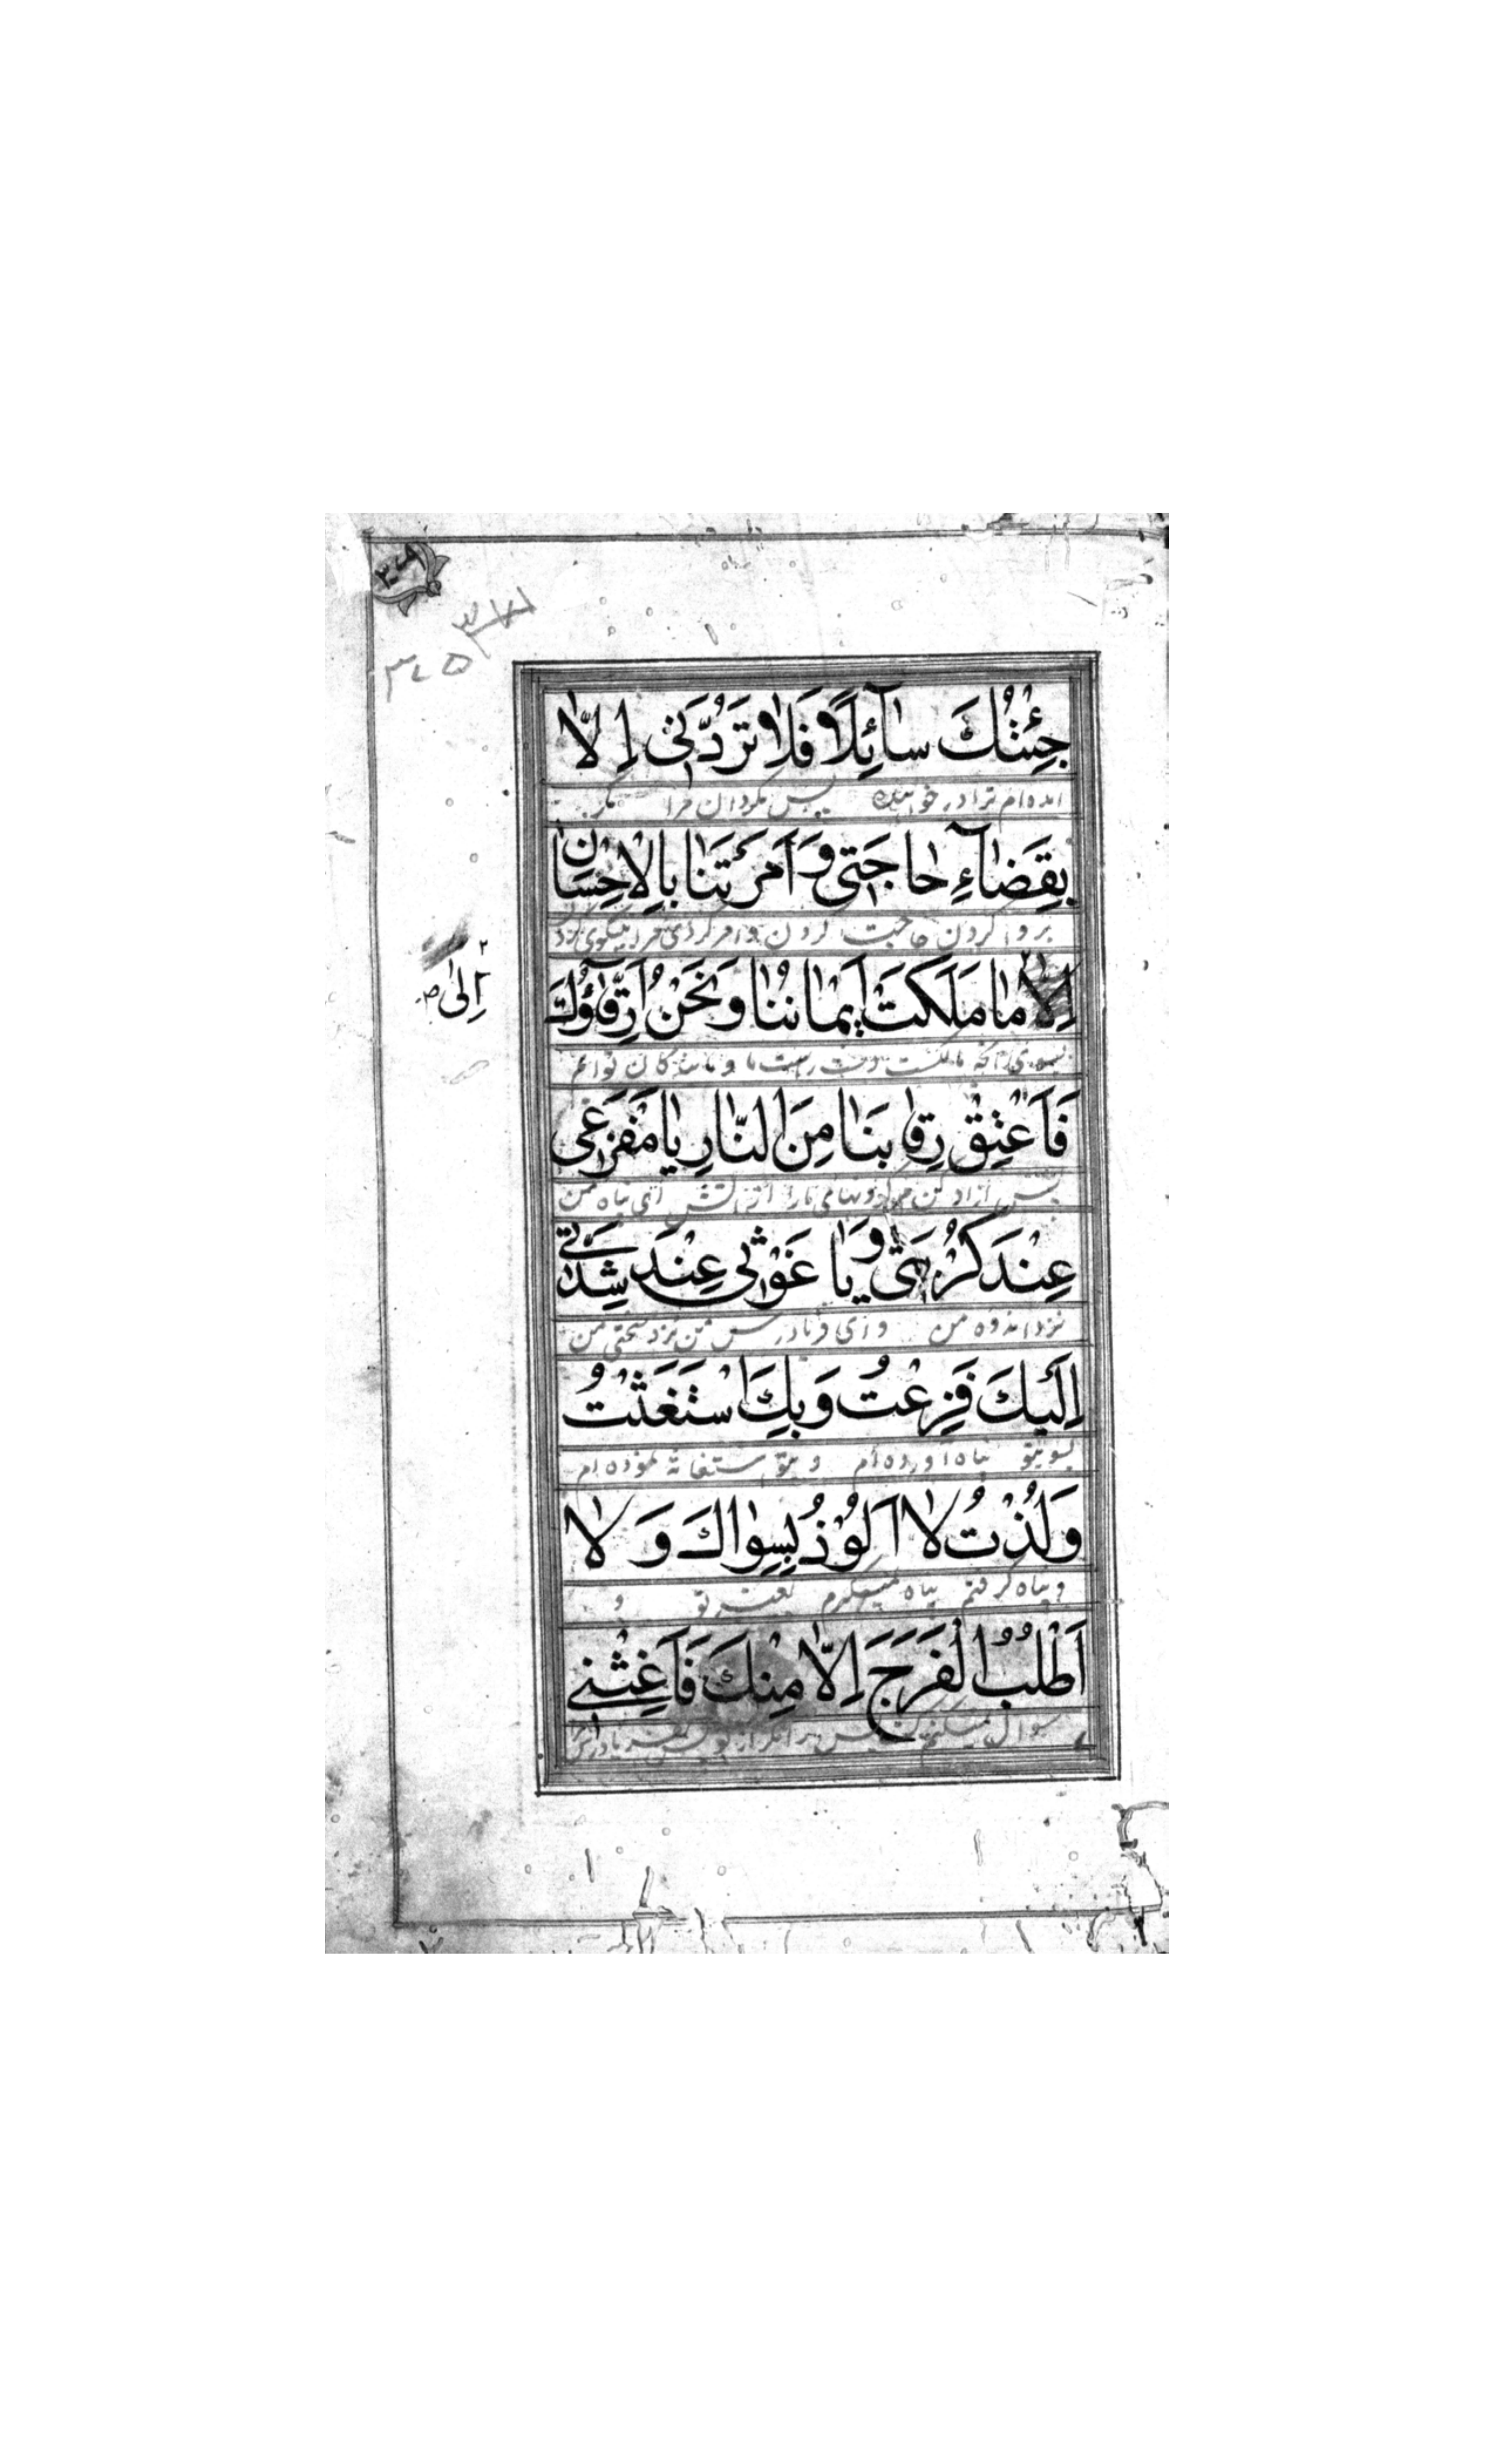 ۳۰۸
۳۷۱
۳۶۵
جِئْتُكَ سآئِلًا فَلا تَرُدَّنى اِلّا
آمده‌ام ترا در خواننده پس مگردان مرا مگر
بِقَضآءِ حاجَتى وَ اَمَرْتَنا بِالْاِحْسانِ
بروا کردن حاجت
اِلىٰ
اِلّا ما مَلَكَتْ اَيْمانُنا وَ نَحْنُ اَرِقّآؤُكَ
بسوی آنکه مالکست دست راست ما و ما بندگان توائم
فَاَعْتِقْ رِقابَنا مِنَ النّارِ يا مَفْزَعى
پس آزاد کن گردنهای مارا از آتش ای پناه من
عِنْدَ كُرْبَتى وَ يا غَوْثى عِنْدَ شِدَّتى
نزد اندوه من و ای فریادرس من نزد سختی من
اِلَيْكَ فَزِعْتُ وَ بِكَ اسْتَغَثْتُ
بسویتو پناه آورده‌ام و بتو استغاثه نموده‌ام
وَ لُذْتُ لا اَلُوْذُ بِسِواكَ وَ لا
و پناه گرفتم پناه نمیگیرم بغیر تو و
اَطْلُبُ الْفَرَجَ اِلّا مِنْكَ فَاَغِثْنى
سؤال نمیکنم گشایش را مگر از تو پس